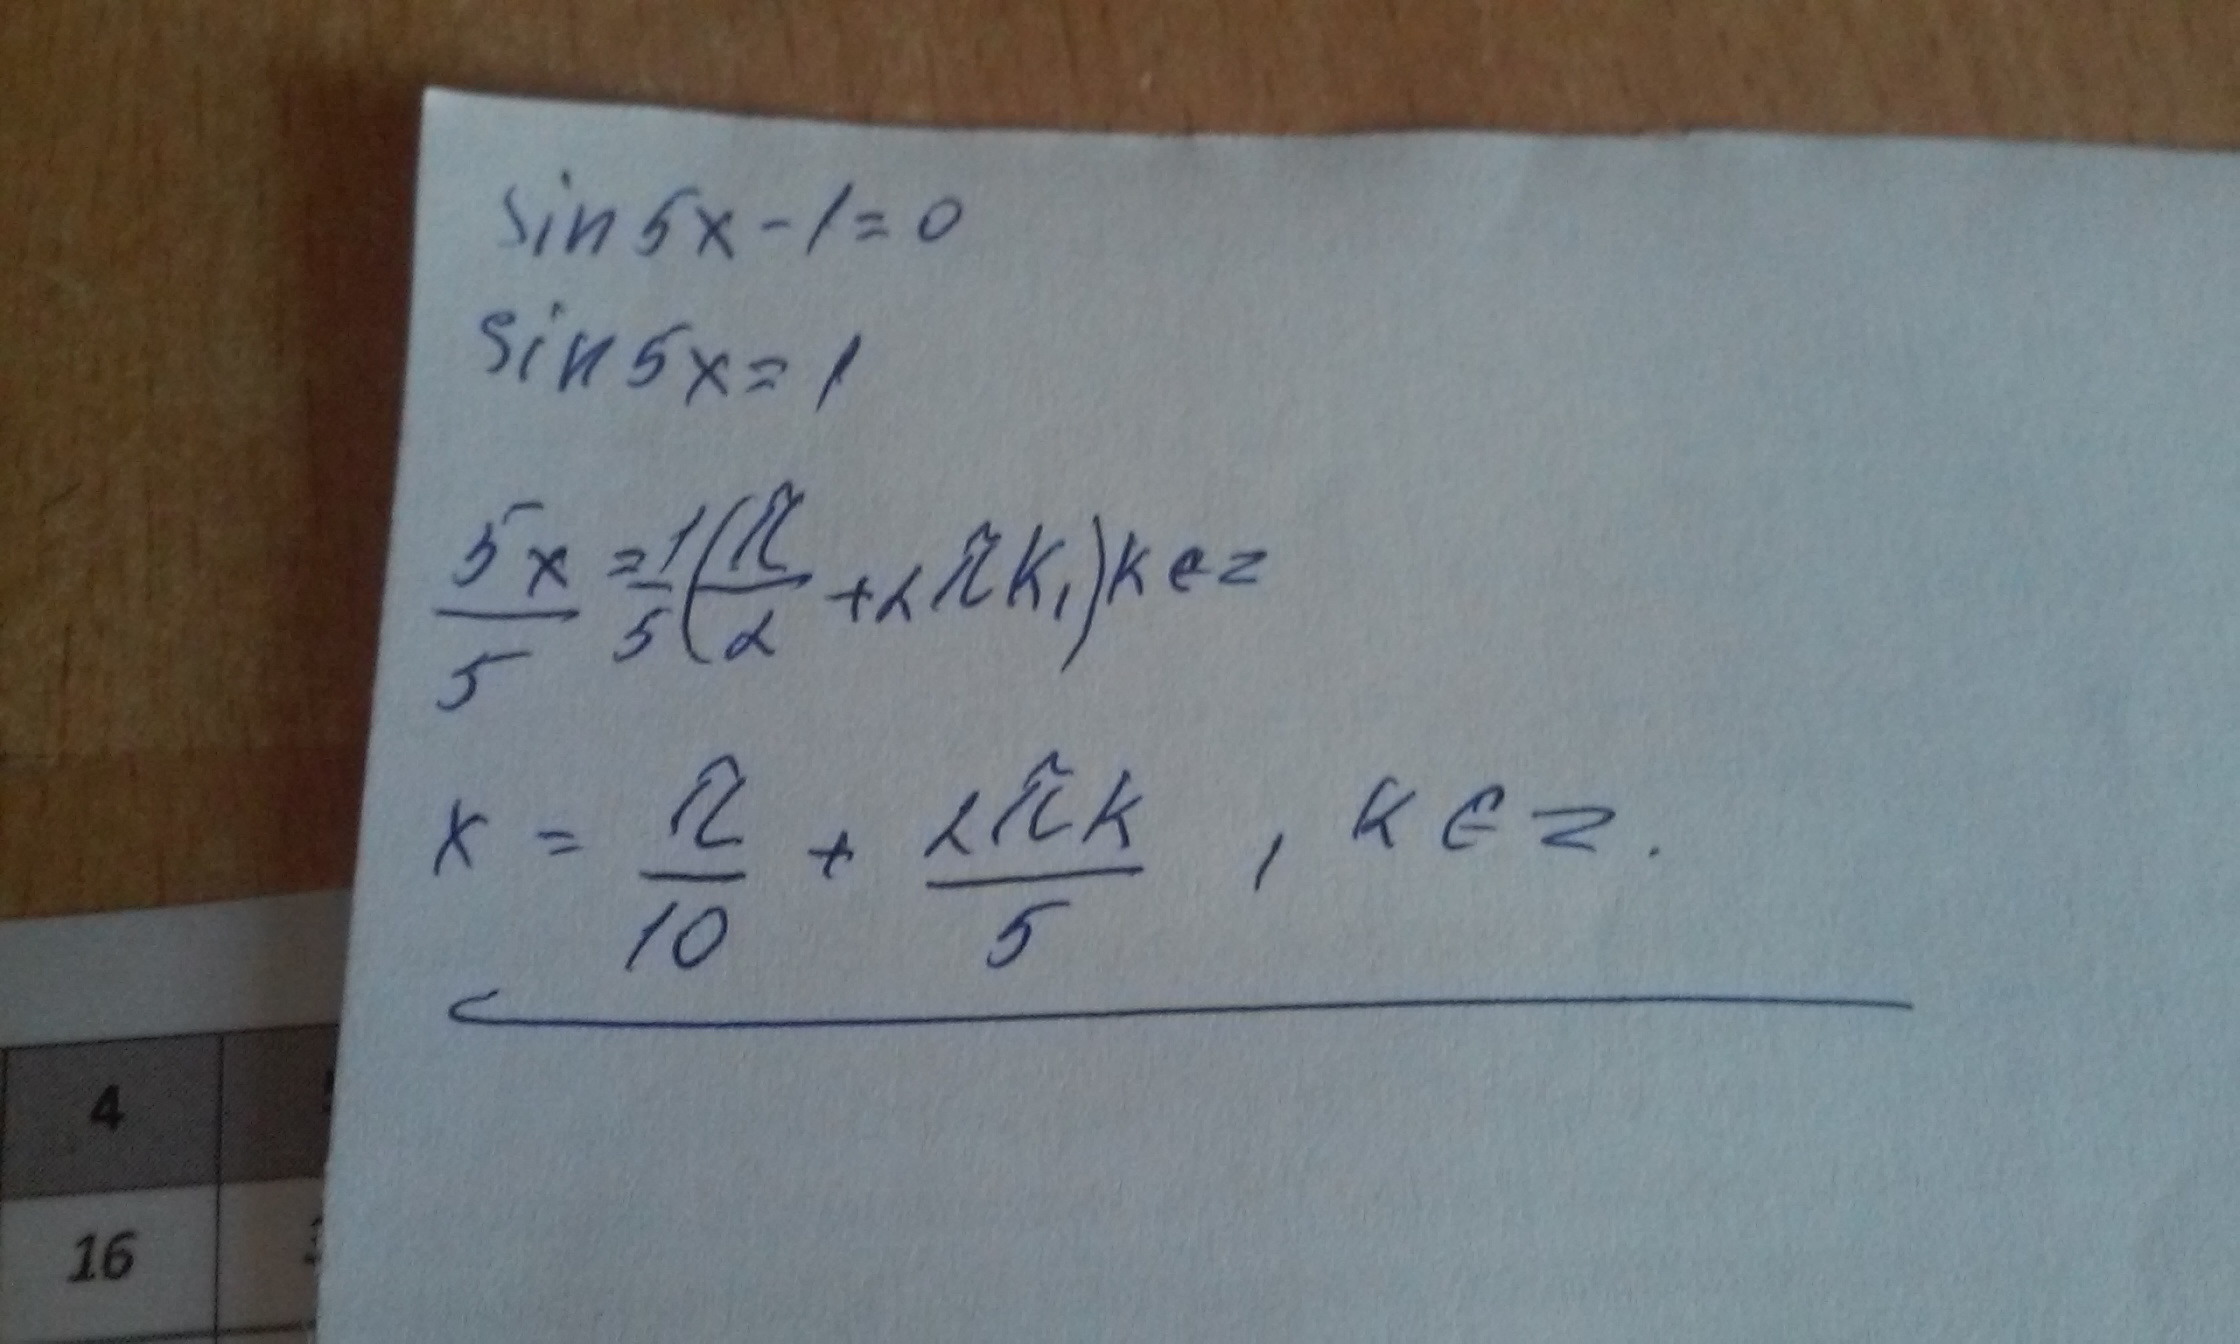 sin5x-1=0
sin5x=1
5x/5 = 1/5(π/2 + 2πk,) k∈z
x = π/10 + 2πk/5 , k∈z.
4
16